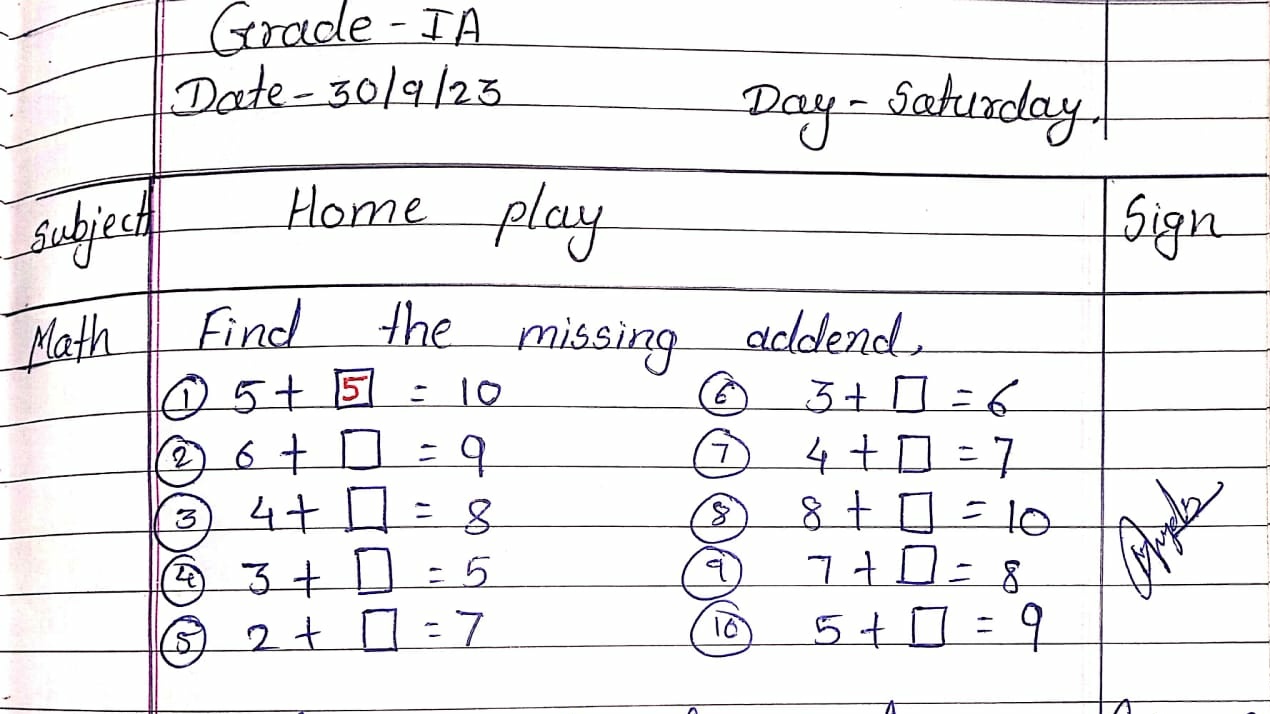 Grade - IA
Date - 30/9/23 Day - Saturday.
Subject Home play Sign
Math Find the missing addend.
① 5 + 5 = 10 ⑥ 3 + □ = 6
② 6 + □ = 9 ⑦ 4 + □ = 7
③ 4 + □ = 8 ⑧ 8 + □ = 10
④ 3 + □ = 5 ⑨ 7 + □ = 8
⑤ 2 + □ = 7 ⑩ 5 + □ = 9